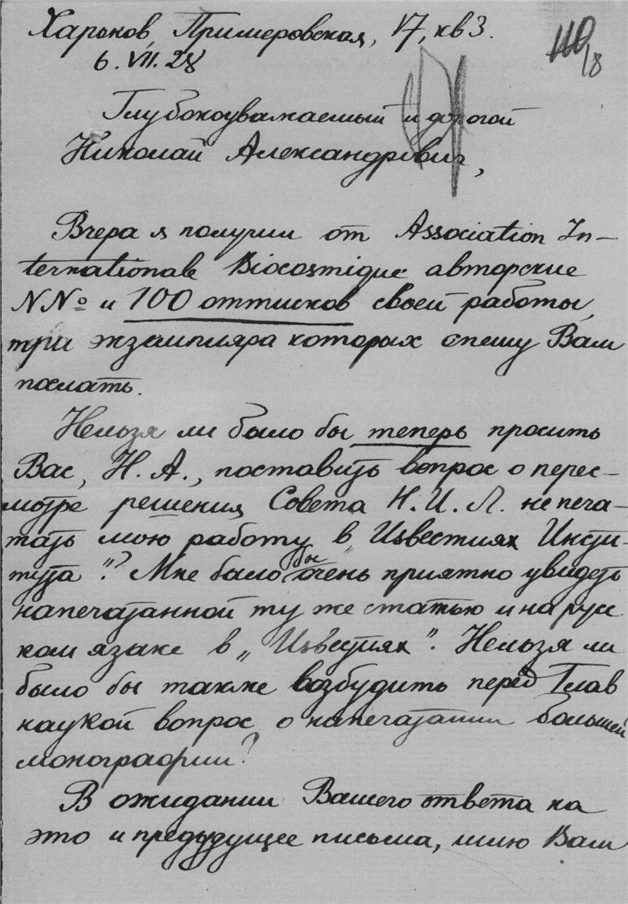 Харьков, Примеровская, 17, кв 3.
6. VII. 28
110
18
Глубокоуважаемый и дорогой
Николай Александрович,
Вчера я получил от Association In-
ternationale Biocosmique авторские
NNº и 100 оттисков своей работы,
три экземпляра которых спешу Вам
послать.
Нельзя ли было бы теперь просить
Вас, Н. А., поставить вопрос о перес-
мотре решения Совета Н. И. Л. не печа-
тать мою работу в "Известиях Инсти-
тута"? Мне было бы очень приятно увидеть
напечатанной ту же статью и на рус
ком языке в "Известиях". Нельзя ли
было бы также возбудить перед Глав
наукой вопрос о напечатании большей
монографии?
В ожидании Вашего ответа на
это и предыдущее письма, шлю Вам